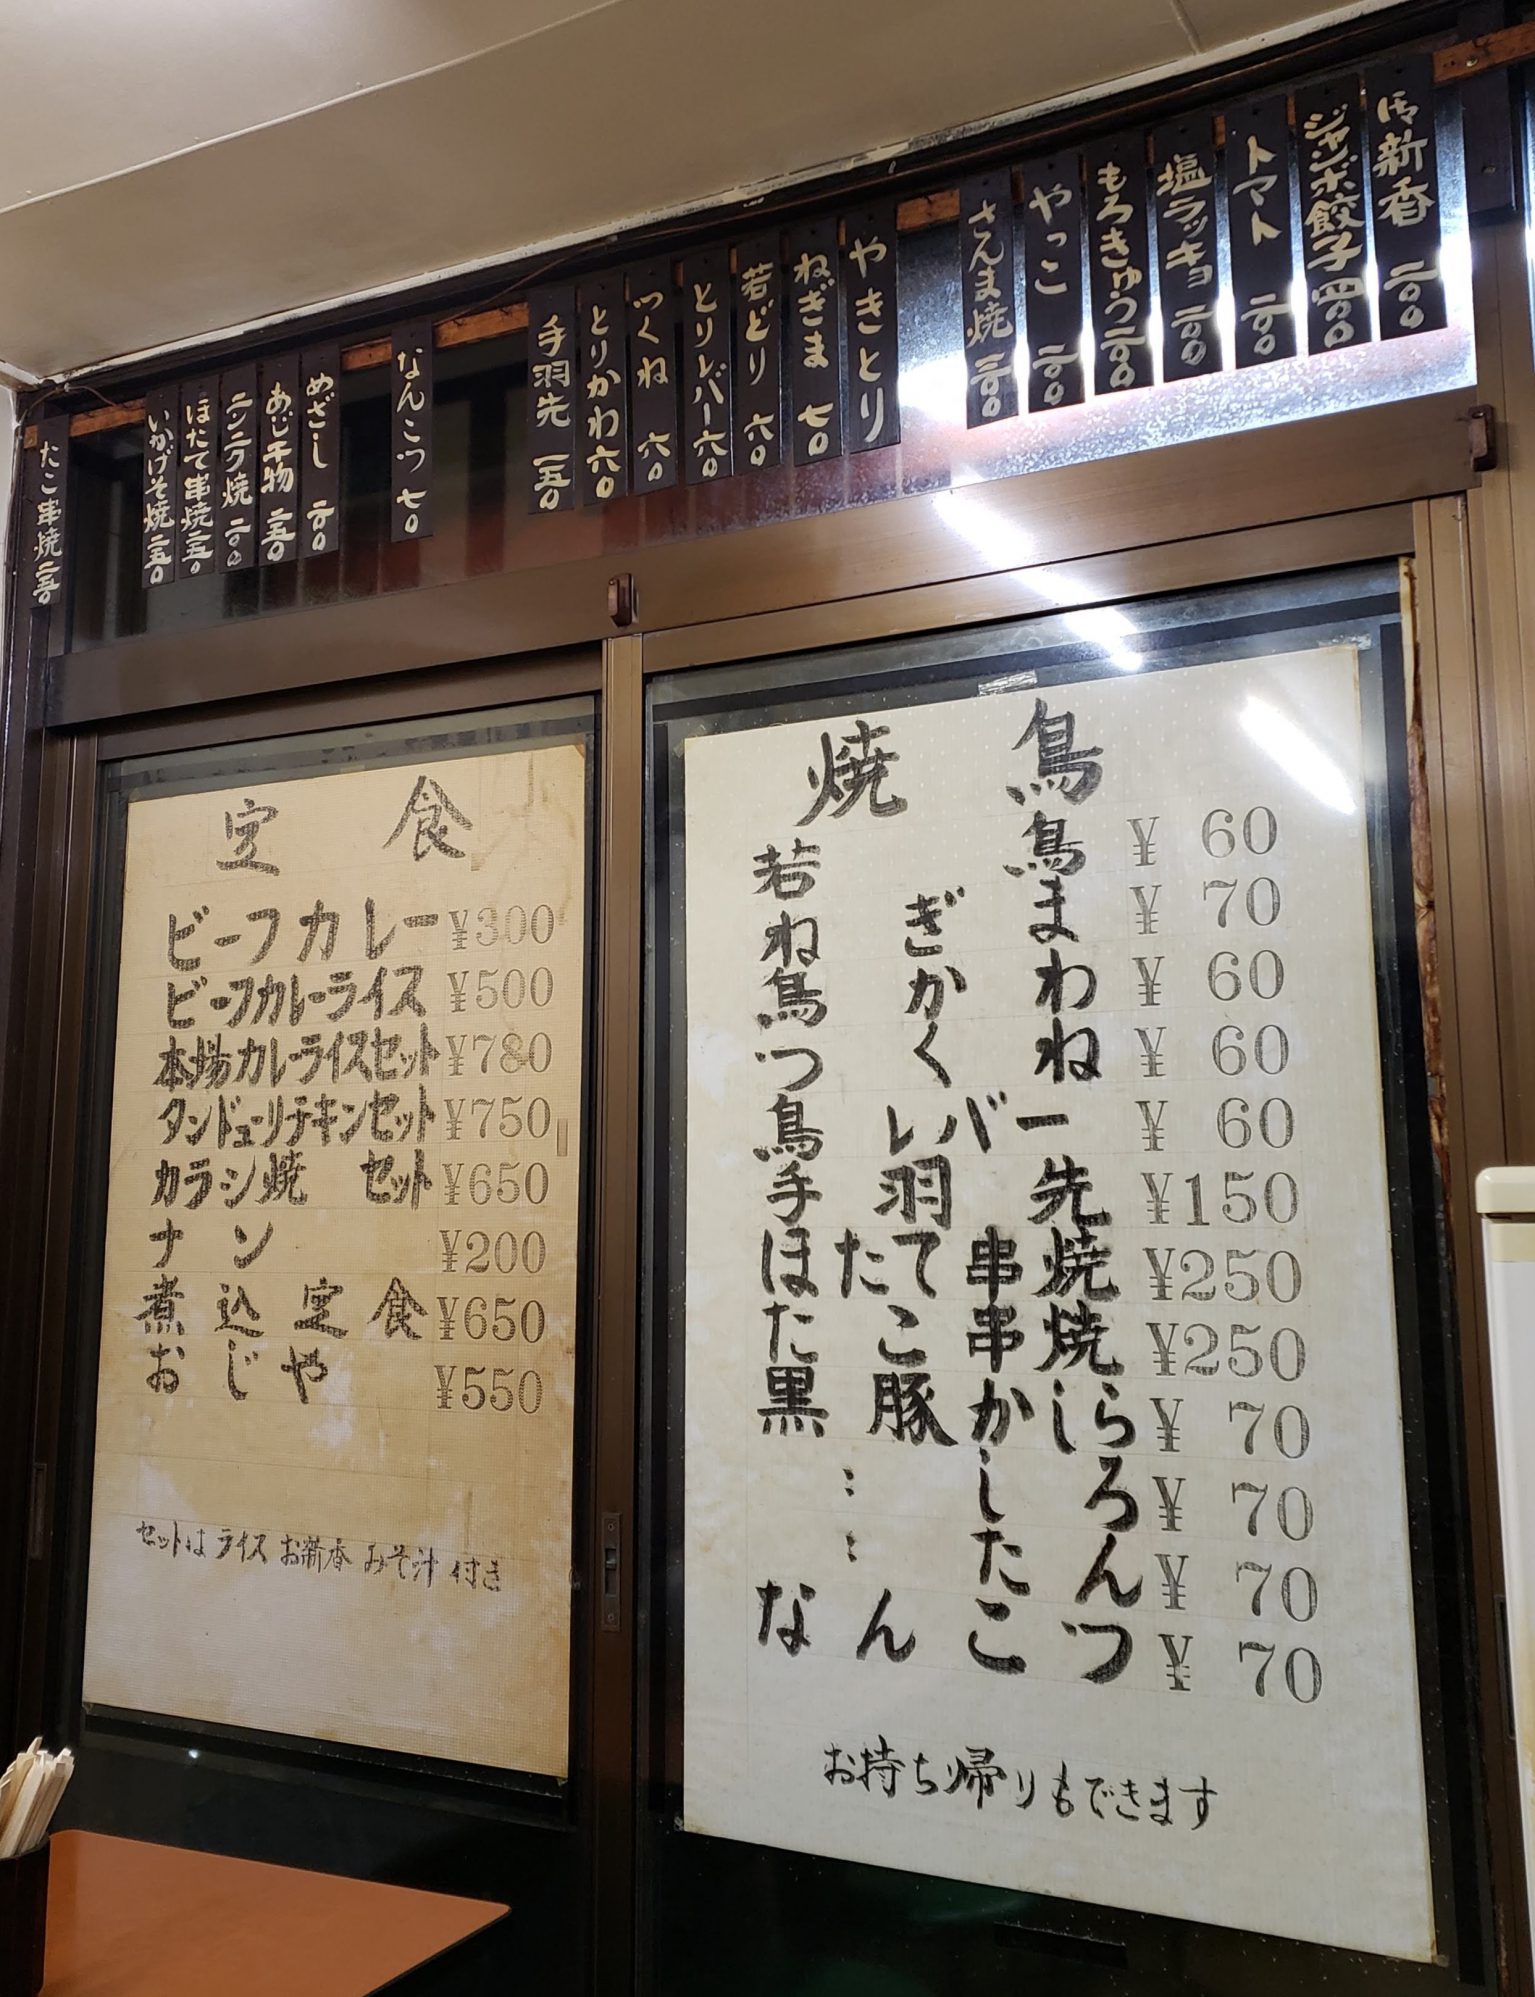 御新香 二〇〇
ジャンボ餃子 四〇〇
トマト 二〇〇
塩ラッキョ 二〇〇
もろきゅう 二〇〇
やっこ 二〇〇
さんま焼 三〇〇
やきとり
ねぎま 七〇
若どり 六〇
とりレバー 六〇
つくね 六〇
とりかわ 六〇
手羽先 一五〇
なんこつ 七〇
めざし 二〇〇
あじ干物 二五〇
ニンニク焼 二〇〇
ほたて串焼 二五〇
いかげそ焼 二五〇
たこ串焼 二五〇
定食
ビーフカレー ¥300
ビーフカレーライス ¥500
本場カレーライスセット ¥780
タンドューリチキンセット ¥750
カラシ焼 セット ¥650
ナン ¥200
煮込定食 ¥650
おじや ¥550
セットは ライス お新香 みそ汁 付き
焼鳥
若鳥 ¥ 60
ねぎま ¥ 70
鳥かわ ¥ 60
つくね ¥ 60
鳥レバー ¥ 60
手羽先 ¥150
ほたて串焼 ¥250
たこ串焼 ¥250
黒豚かしら ¥ 70
〃しろ ¥ 70
〃たん ¥ 70
なんこつ ¥ 70
お持ち帰りもできます